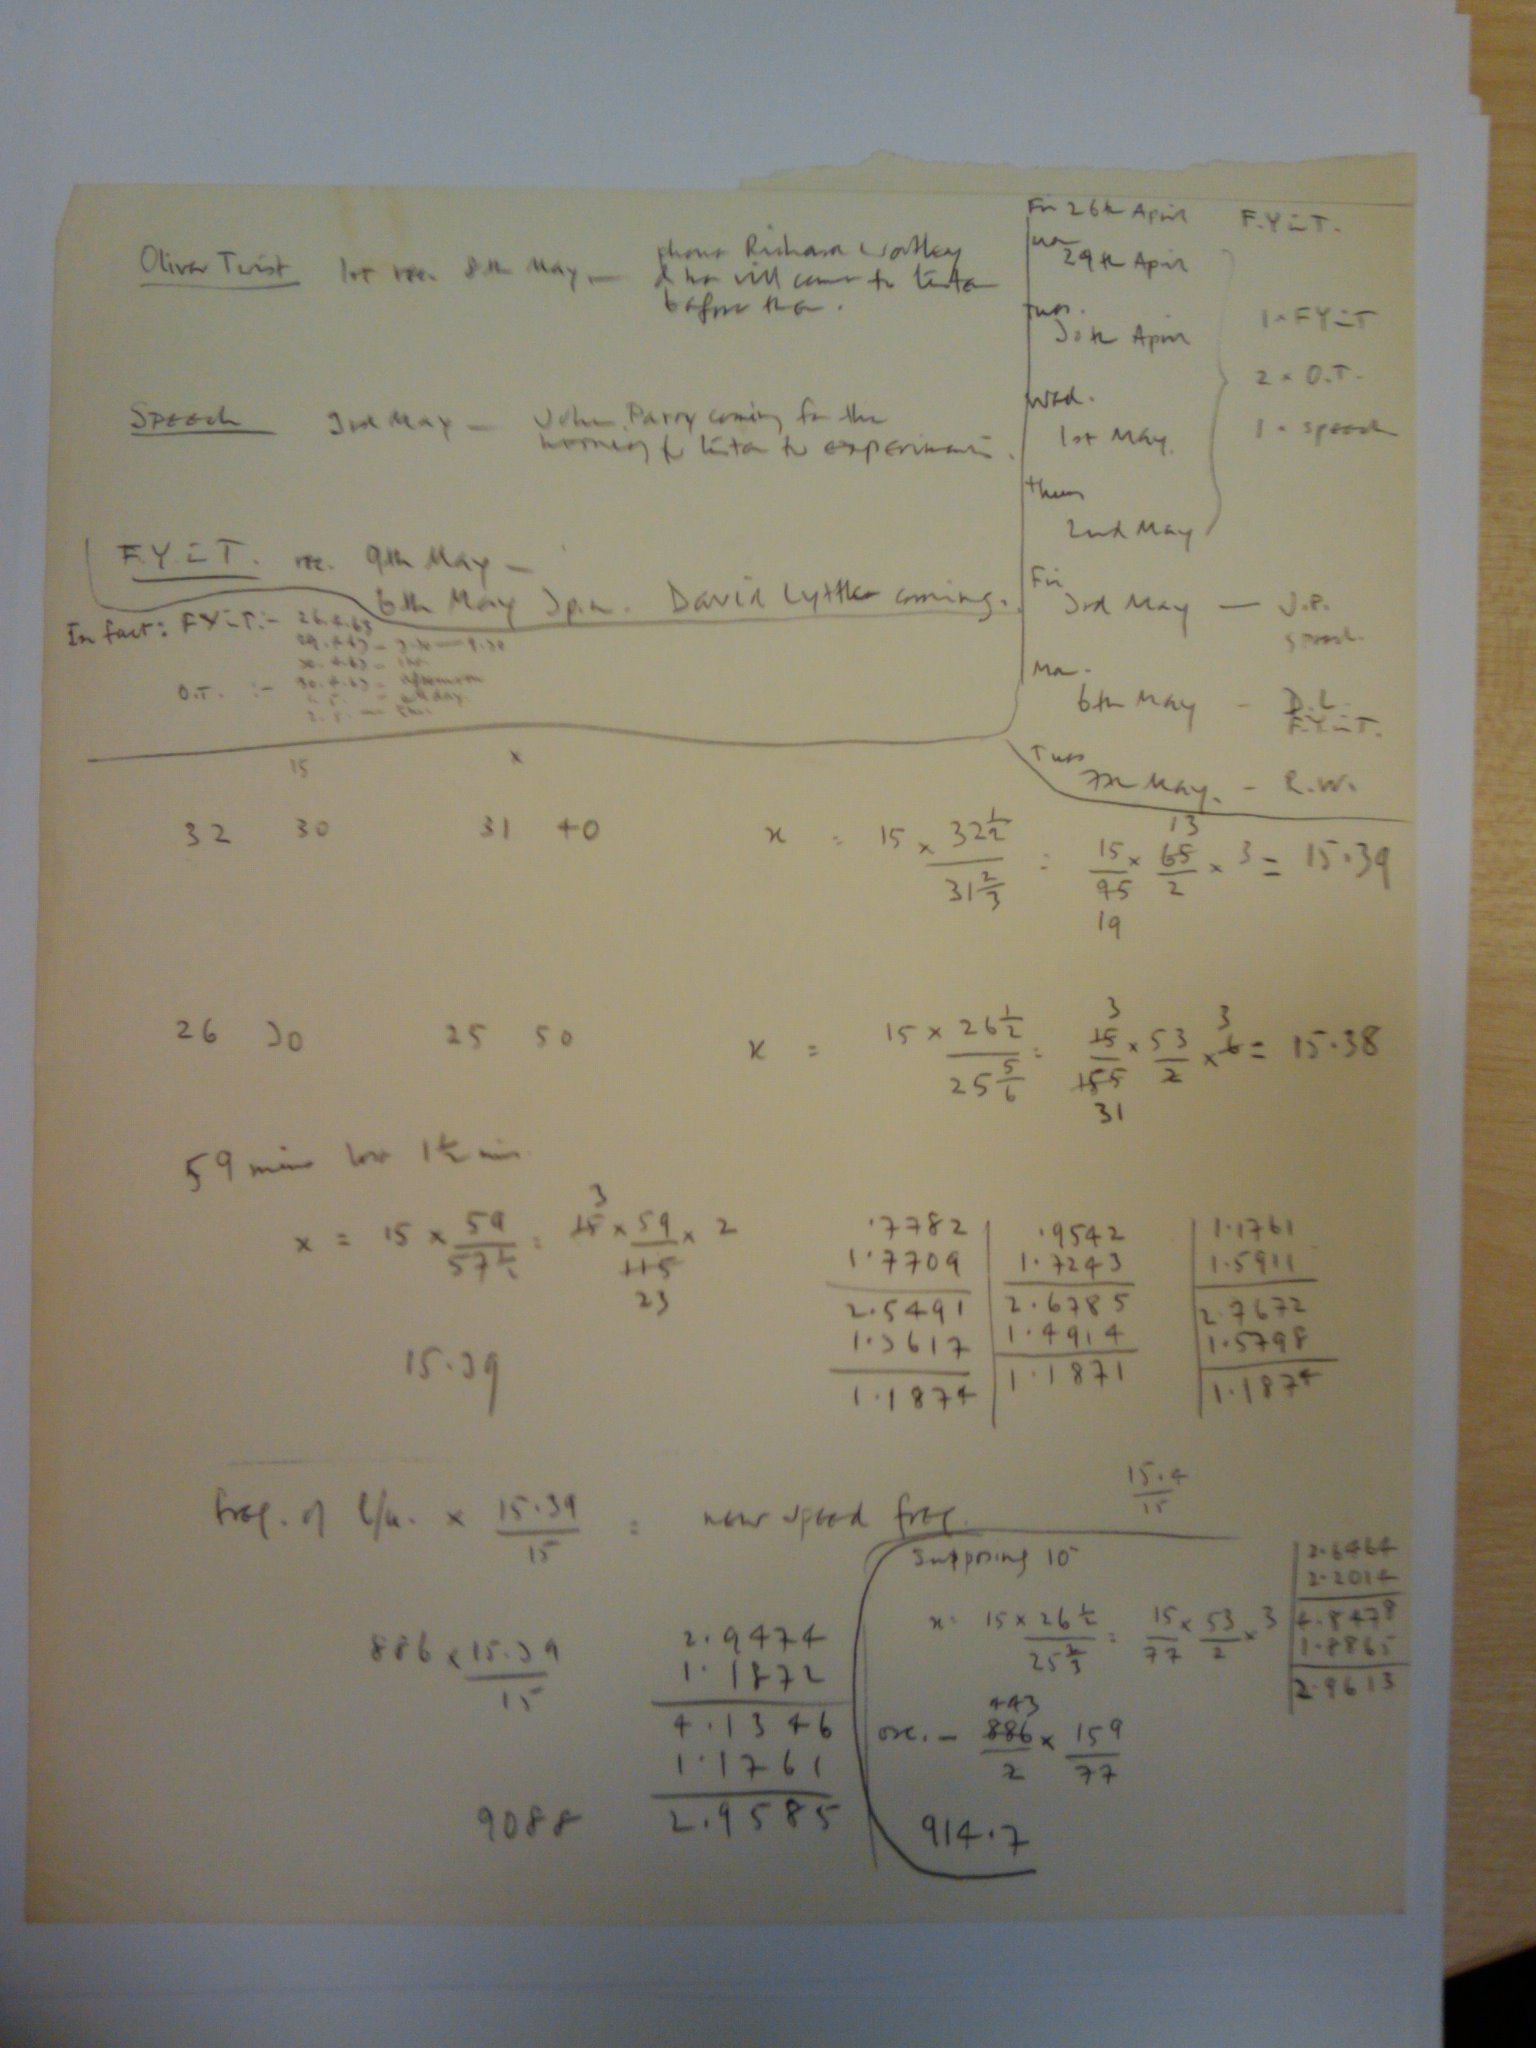 Oliver Twist 1st rec. 8th May — phone Richard Wortley
& he will come to listen
before then.
Speech 3rd May — John Parry coming for the
morning to listen to experiments.
F.Y.I.T. rec. 9th May —
6th May 3 p.m. David Lyttle coming.
In fact: F.Y.I.T. :- 26.4.63
29.4.63 -
30.4.63 - 1 hr.
O.T. :- 30.4.63 - afternoon
all day
Fri 26th April F.Y.I.T.
Mon
29th April
Tues.
30th April 1 × F.Y.I.T
2 × O.T.
Wed.
1st May 1 × speech
Thurs
2nd May
Fri
3rd May — J.P.
speech.
Mon.
6th May - D.L.
F.Y.I.T.
Tues
7th May. - R.W.
15 x
32 30 31 40 x = 15 × 32½ / 31⅔ = 15/95 × 65/2 × 3 = 15.39
13
19
26 30 25 50 x = 15 × 26½ / 25 5/6 = 15/155 × 53/2 × 6 = 15.38
3 3
31
59 mins 1½ min.
x = 15 × 59 / 57½ = 15 × 59/115 × 2
3
23
15.39
.7782
1.7709
2.5491
1.3617
1.1874
.9542
1.7243
2.6785
1.4914
1.1871
1.1761
1.5911
2.7672
1.5798
1.1874
15.4
15
freq. of × 15.39/15 = new speed freq.
886 × 15.39/15
2.9474
1.1872
4.1346
1.1761
2.9585
9088
Supposing 10
x = 15 × 26½ / 25⅔ = 15/77 × 53/2 × 3
443
osc. - 886/2 × 159/77
914.7
2.6464
2.2014
4.8478
1.8865
2.9613